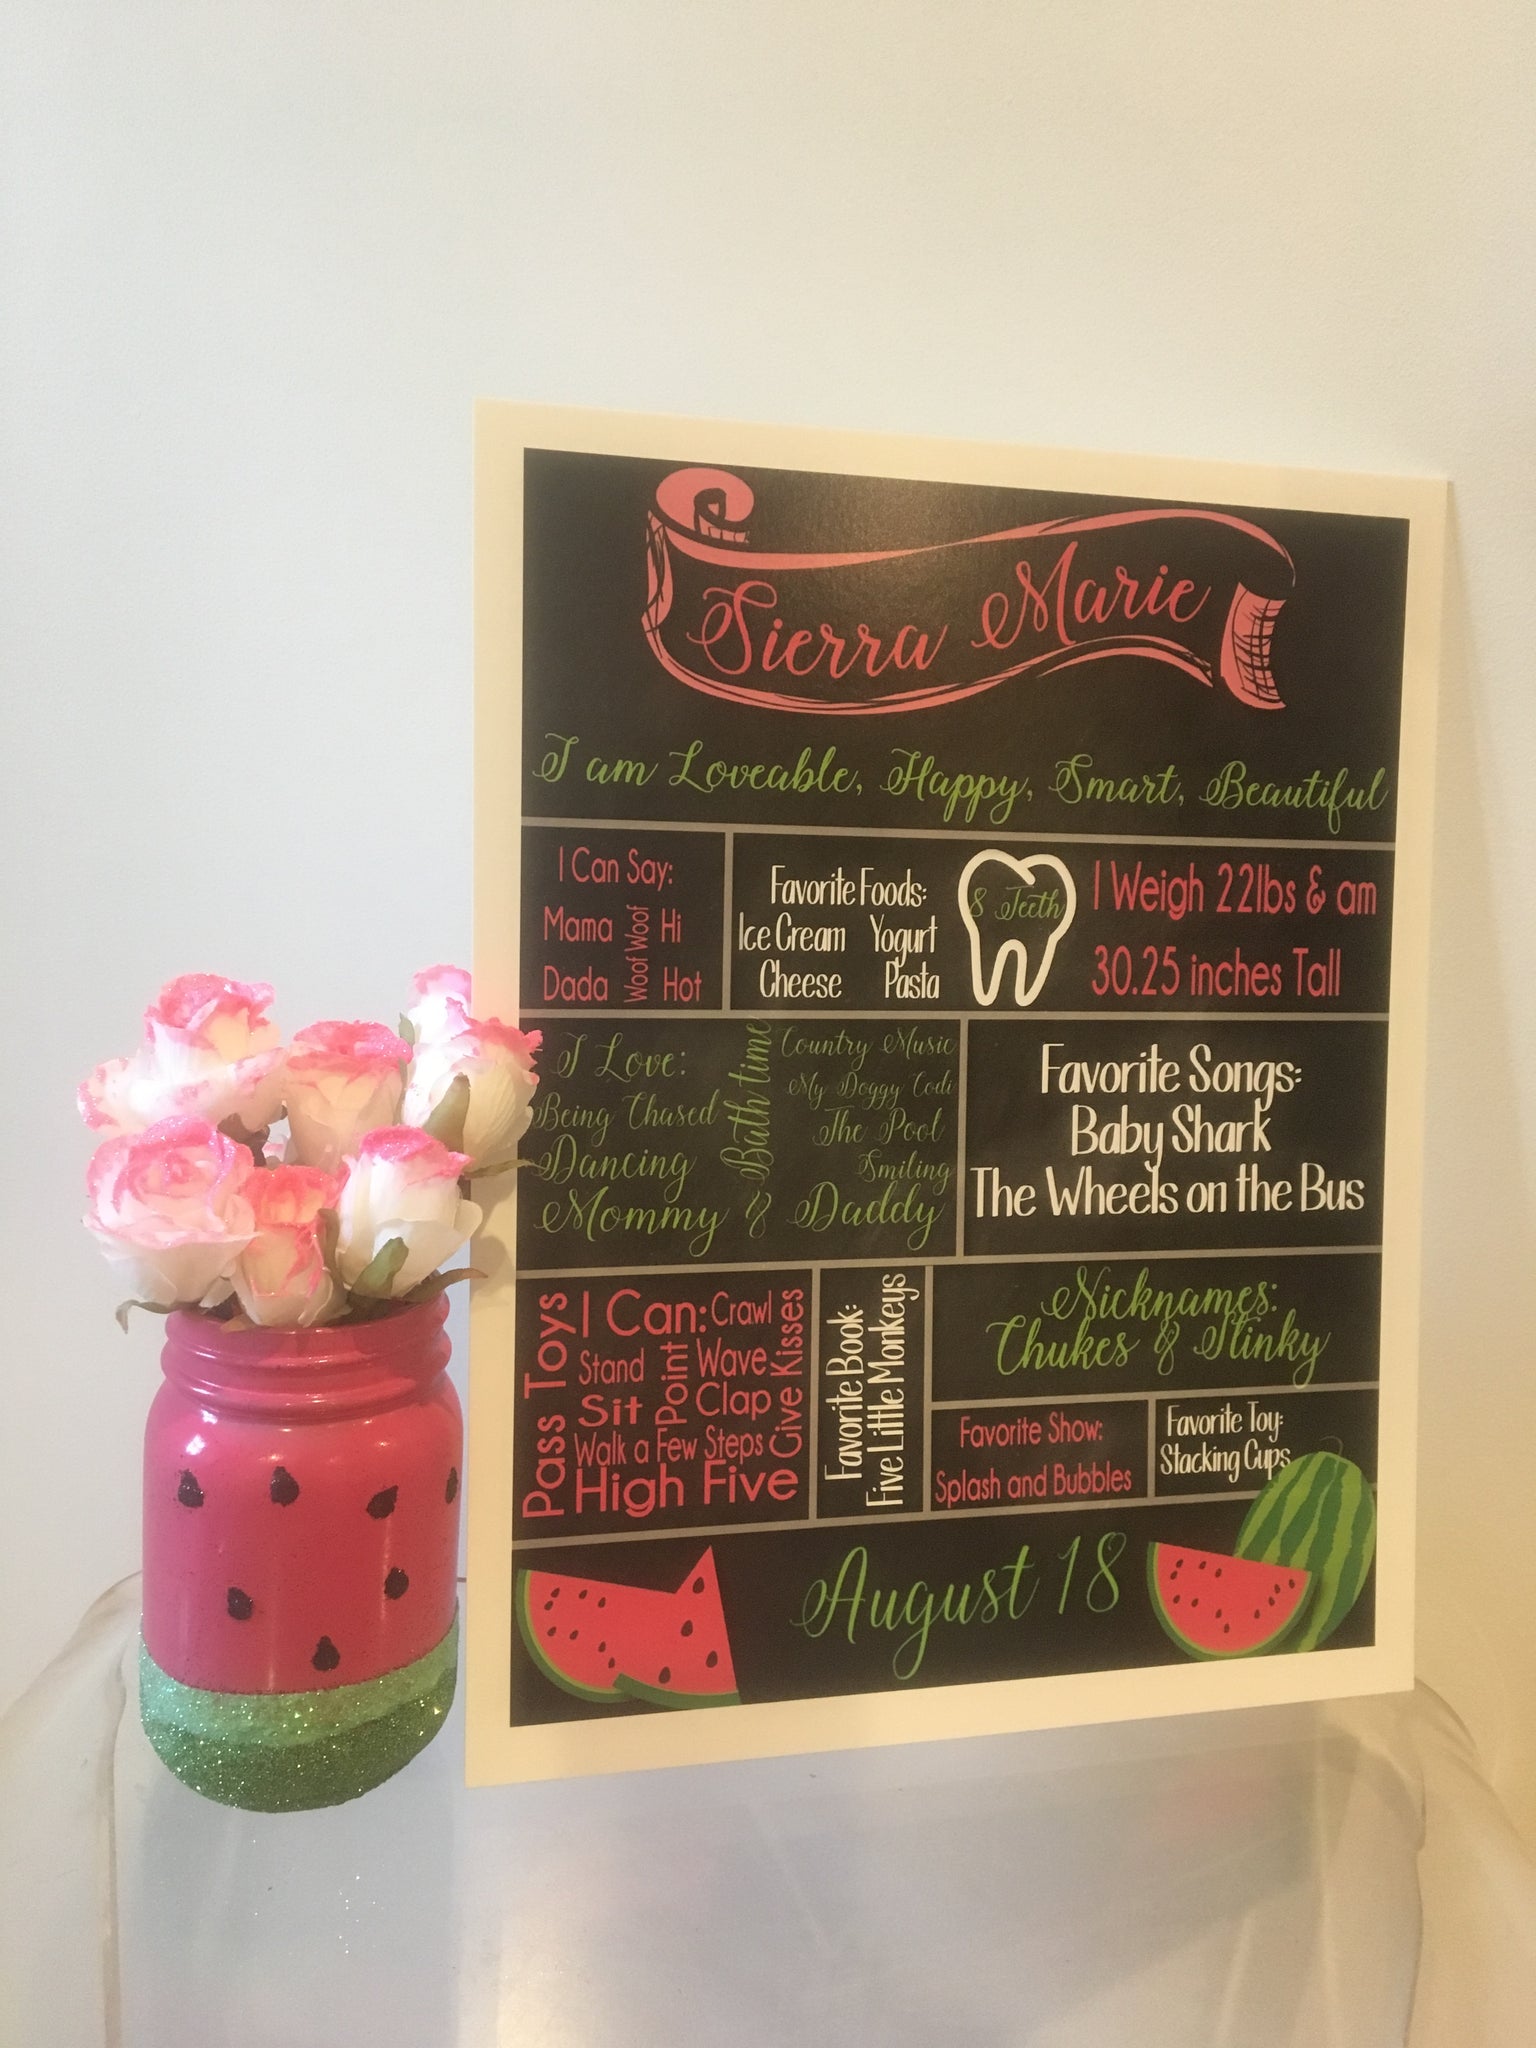 Sierra Marie
I am Loveable, Happy, Smart, Beautiful
I Can Say:
Mama
Woof Woof
Hi
Dada
Hot
Favorite Foods:
Ice Cream Yogurt
Cheese Pasta
8 Teeth
I Weigh 22lbs & am
30.25 inches Tall
I Love:
Being Chased
Dancing
Mommy & Daddy
Bath time
Country Music
My Doggy Codi
The Pool
Smiling
Favorite Songs:
Baby Shark
The Wheels on the Bus
Pass Toys
I Can: Crawl
Stand
Point
Wave
Sit
Clap
Give Kisses
Walk a Few Steps
High Five
Favorite Book:
Five Little Monkeys
Nicknames:
Chukes & Stinky
Favorite Show:
Splash and Bubbles
Favorite Toy:
Stacking Cups
August 18